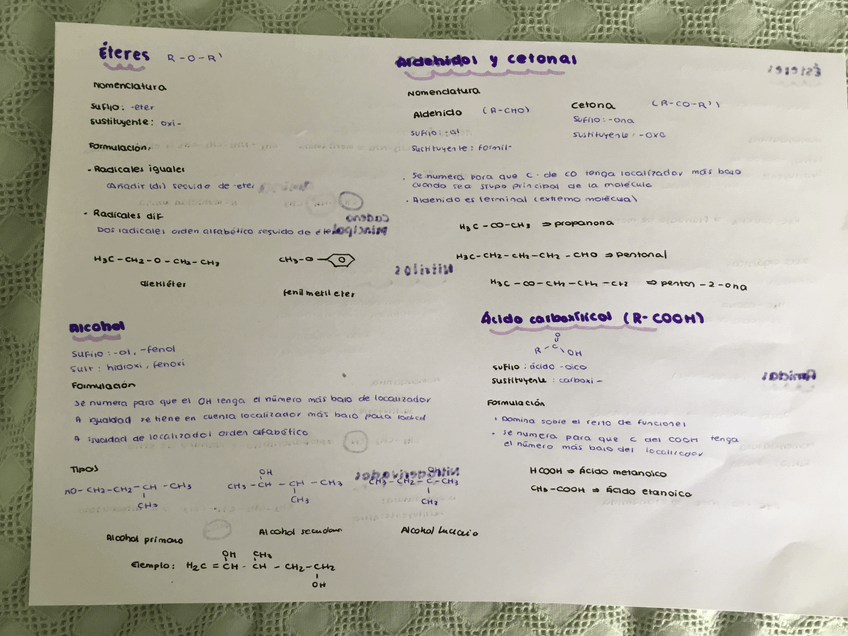 Éteres R-O-R'
Nomenclatura
Sufijo: -éter
Sustituyente: oxi-
Formulación:
- Radicales iguales
(Añadir (di) seguido de -eter
- Radicales dif
Dos radicales orden alfabético seguido de éter
H3C-CH2-O-CH2-CH3
dietiléter
CH3-O-
fenilmetileter
Alcohol
Sufijo: -ol, -fenol
Sust: hidroxi, fenoxi
Formulación
Se numera para que el OH tenga el número más bajo de localizador
A igualdad se tiene en cuenta localizador más bajo para radical
A igualdad de localizador orden alfabético
Tipos
HO-CH2-CH2-CH-CH3
CH3
Alcohol primario
OH
CH3-CH-CH-CH3
CH3
Alcohol secundario
CH3-CH2-C-CH3
Alcohol terciario
Ejemplo: H2C=CH-CH-CH2-CH2
OH CH3
OH
Aldehidos y cetonas
Nomenclatura
Aldehido (R-CHO)
Sufijo: -al
Sustituyente: formil-
Cetona (R-CO-R')
Sufijo: -ona
Sustituyente: -oxo
. Se numera para que C. de CO tenga localizador más bajo
cuando sea grupo principal de la molécula
. Aldehido es terminal (extremo molécula)
H3C-CO-CH3 ⇒ propanona
H3C-CH2-CH2-CH2-CHO ⇒ pentanal
H3C-CO-CH2-CH2-CH3 ⇒ pentan-2-ona
Ácido carboxílico (R-COOH)
O
R-C
OH
Sufijo: ácido -oico
Sustituyente: carboxi-
Formulación
· Domina sobre el resto de funciones
· Se numera para que C del COOH tenga
el número más bajo del localizador
HCOOH ⇒ Ácido metanoico
CH3-COOH ⇒ Ácido etanoico